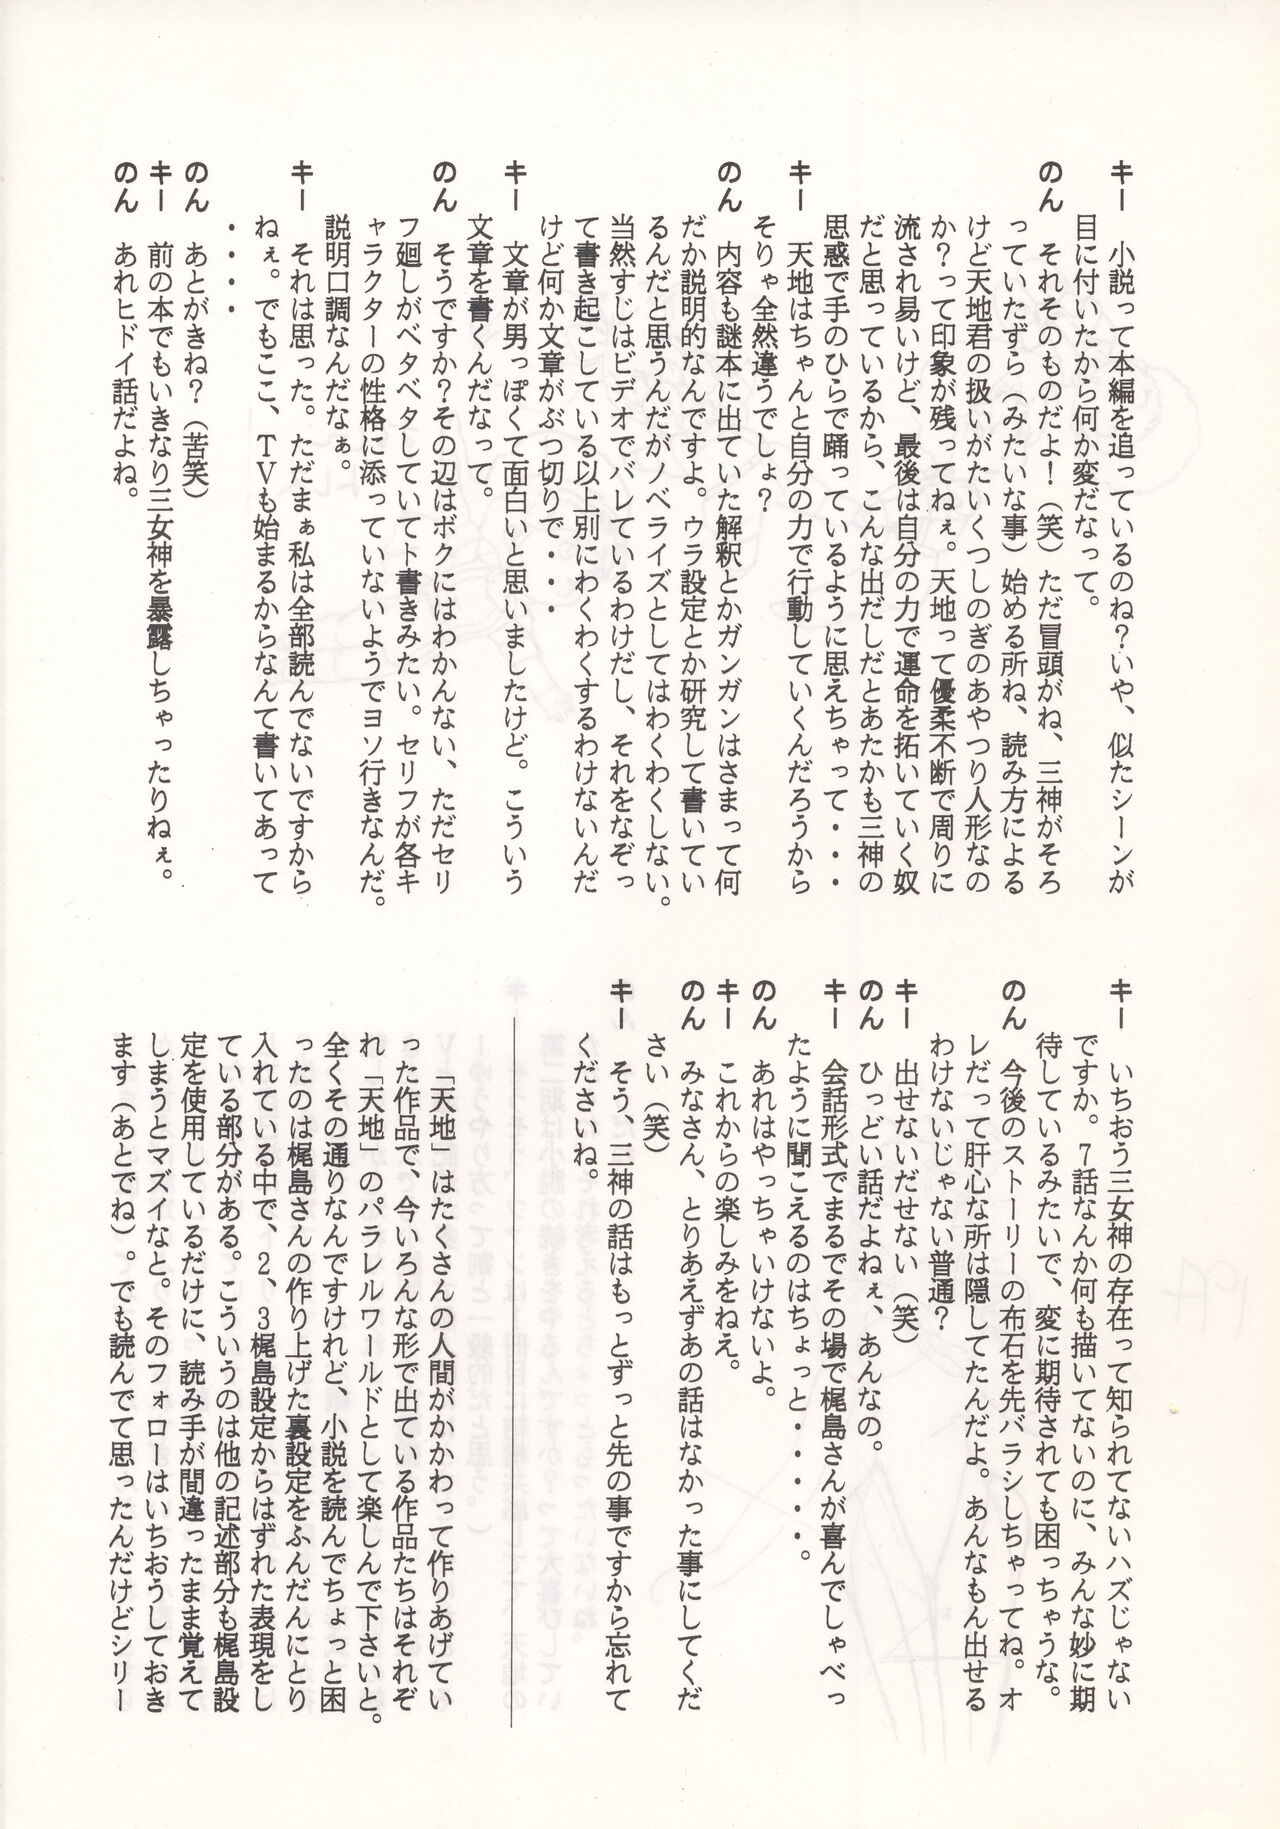 キー　小説って本編を追っているのね？いや、似たシーンが
目に付いたから何か変だなって。
のん　それそのものだよ！（笑）ただ冒頭がね、三神がそろ
っていたずら（みたいな事）始める所ね、読み方による
けど天地君の扱いがたいくつしのぎのあやつり人形なの
か？って印象が残ってねぇ。天地って優柔不断で周りに
流され易いけど、最後は自分の力で運命を拓いていく奴
だと思っているから、こんな出だしだとあたかも三神の
思惑で手のひらで踊っているように思えちゃって・・・
キー　天地はちゃんと自分の力で行動していくんだろうから
そりゃ全然違うでしょ？
のん　内容も謎本に出ていた解釈とかガンガンはさまって何
だか説明的なんですよ。ウラ設定とか研究して書いてい
るんだと思うんだがノベライズとしてはわくわくしない。
当然すじはビデオでバレているわけだし、それをなぞっ
て書き起こしている以上別にわくわくするわけないんだ
けど何か文章がぶつ切りで・・・
キー　文章が男っぽくて面白いと思いましたけど。こういう
文章を書くんだなって。
のん　そうですか？その辺はボクにはわかんない、ただセリ
フ廻しがベタベタしていてト書きみたい。セリフが各キ
ャラクターの性格に添っていないようでヨソ行きなんだ。
説明口調なんだなぁ。
キー　それは思った。ただまぁ私は全部読んでないですから
ねぇ。でもここ、ＴＶも始まるからなんて書いてあって
・・・・
のん　あとがきね？（苦笑）
キー　前の本でもいきなり三女神を暴露しちゃったりねぇ。
のん　あれヒドイ話だよね。
キー　いちおう三女神の存在って知られてないハズじゃない
ですか。７話なんか何も描いてないのに、みんな妙に期
待しているみたいで、変に期待されても困っちゃうな。
のん　今後のストーリーの布石を先バラシしちゃってね。オ
レだって肝心な所は隠してたんだよ。あんなもん出せる
わけないじゃない普通？
キー　出せないだせない（笑）
のん　ひっどい話だよねぇ、あんなの。
キー　会話形式でまるでその場で梶島さんが喜んでしゃべっ
たように聞こえるのはちょっと・・・・。
のん　あれはやっちゃいけないよ。
キー　これからの楽しみをねえ。
のん　みなさん、とりあえずあの話はなかった事にしてくだ
さい（笑）
キー　そう、三神の話はもっとずっと先の事ですから忘れて
くださいね。
「天地」はたくさんの人間がかかわって作りあげてい
った作品で、今いろんな形で出ている作品たちはそれぞ
れ「天地」のパラレルワールドとして楽しんで下さいと。
全くその通りなんですけれど、小説を読んでちょっと困
ったのは梶島さんの作り上げた裏設定をふんだんにとり
入れている中で、２、３梶島設定からはずれた表現をし
ている部分がある。こういうのは他の記述部分も梶島設
定を使用しているだけに、読み手が間違ったまま覚えて
しまうとマズイなと。そのフォローはいちおうしておき
ます（あとでね）。でも読んでて思ったんだけどシリー